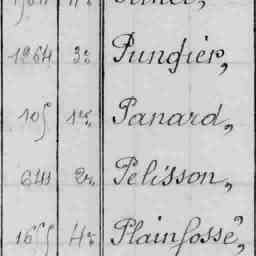 1264 3e Pungier,
105 1er Panard,
641 2e Pelisson,
1655 4e Plainfosse,